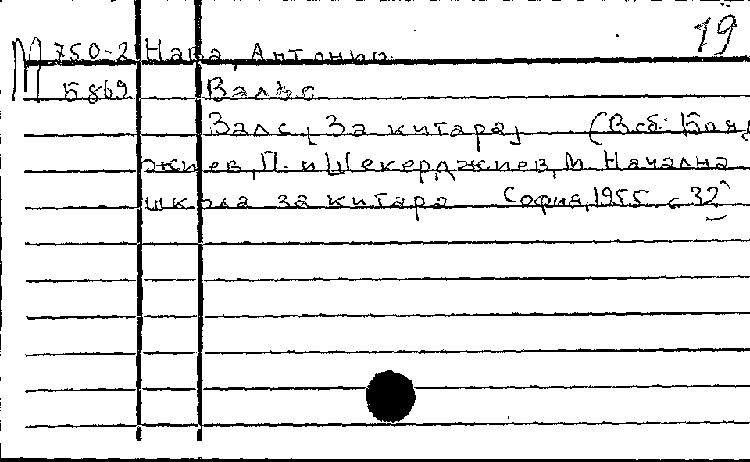 19
М 750-2 Нава, Антонио
Б869 Валъс
Валс, За китара, (В сб: Бояд
жиев, П. и Шекерджиев, М. Начална
школа за китара София, 1955 с 32